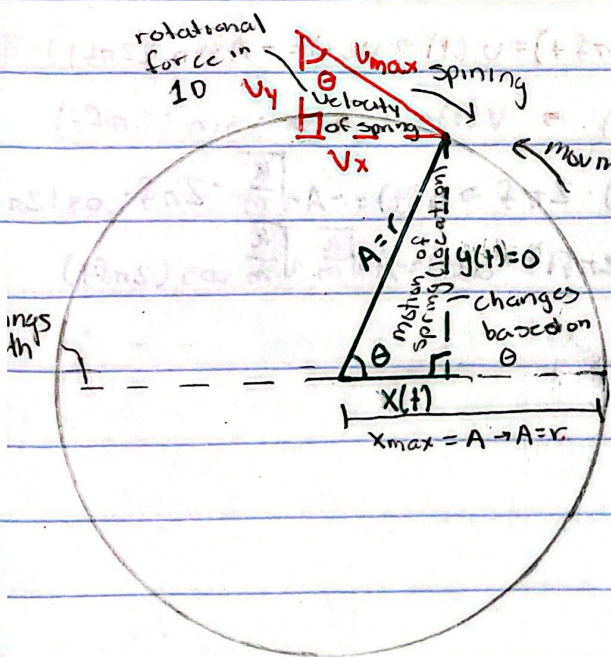 rotational
force in
1D
θ
Vmax
spining
Vy
velocity
of spring
Vx
A=r
motion of
spring (location)
y(t)=0
changes
based on
θ
θ
x(t)
xmax = A → A=r